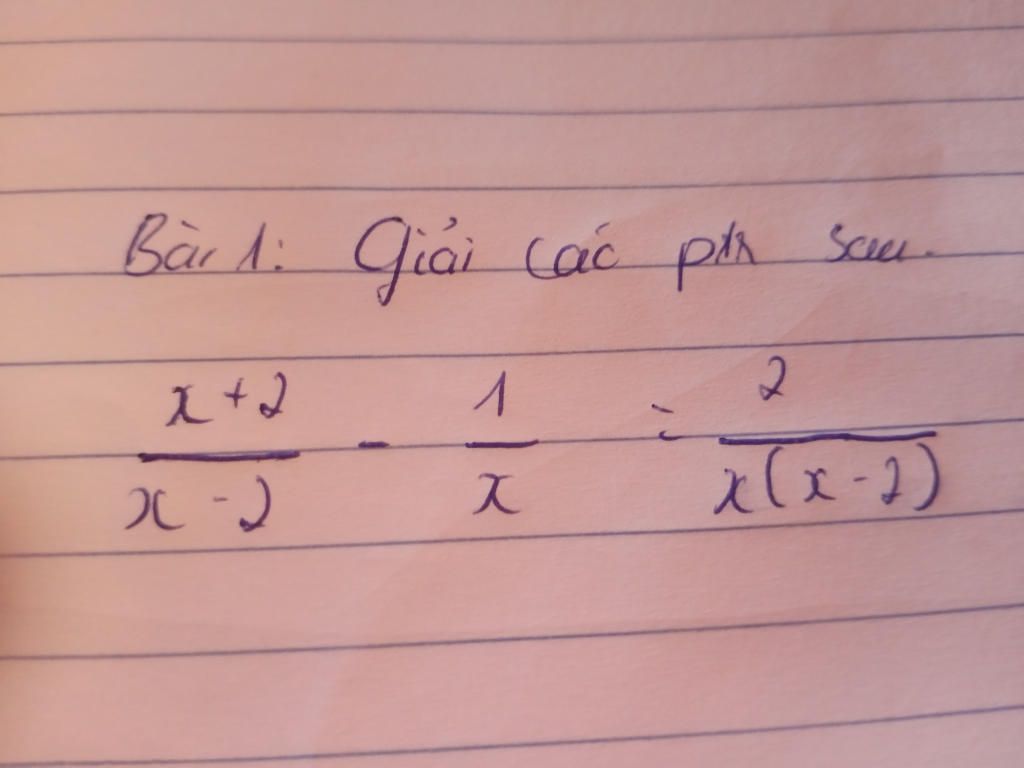 Bài 1: Giải các ptr sau.
x+2 / x-2 - 1 / x = 2 / x(x-2)